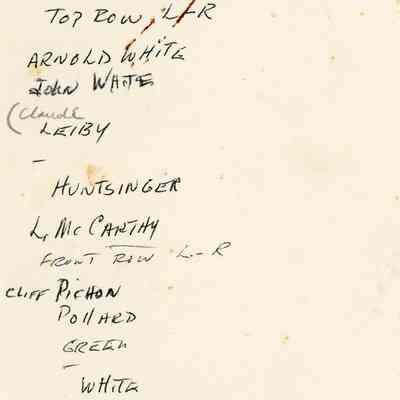 TOP ROW, L-R
ARNOLD WHITE
JOHN WHITE
(Claude
LEIBY
–
HUNTSINGER
L. McCARTHY
FRONT ROW L-R
CLIFF PICHON
POllARD
GREEN
–
WHITE